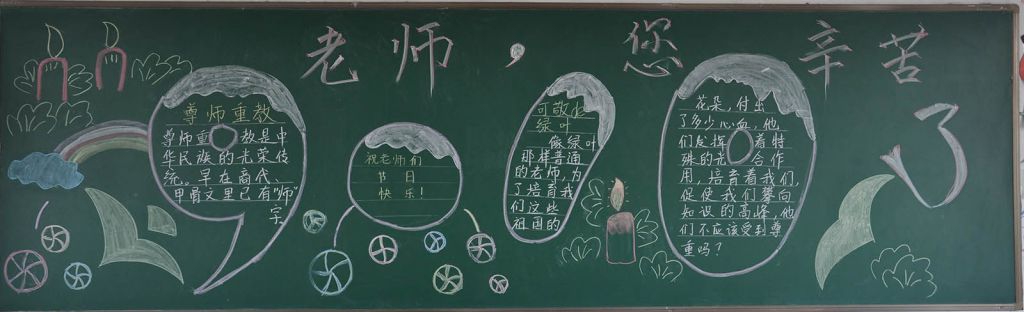 老师，您辛苦了
尊师重教
尊师重教是中
华民族的光荣传
统。早在商代、
甲骨文里已有“师”
字
祝老师们
节日
快乐！
可敬的
绿叶
像绿叶
那样普通
的老师，为
了培育我
们这些
祖国的
花朵，付出
了多少心血，他
们发挥着特
殊的光合作
用，培育着我们，
促使我们攀向
知识的高峰，他
们不应该受到尊
重吗？